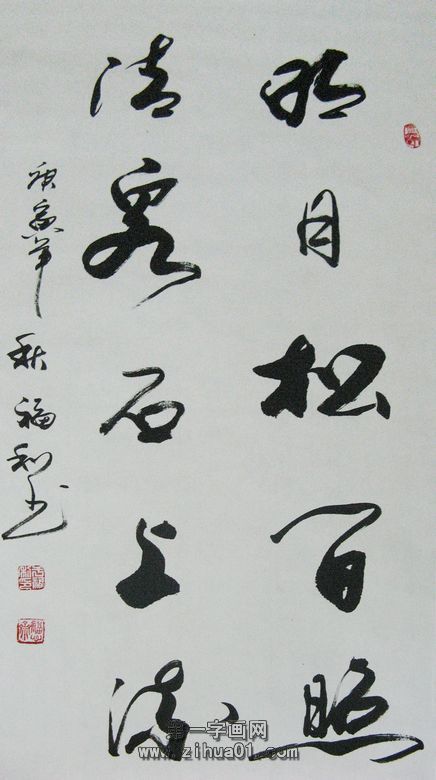 明月松间照
清泉石上流
庚寅年秋福利书
第一字画网
www.zihua01.com